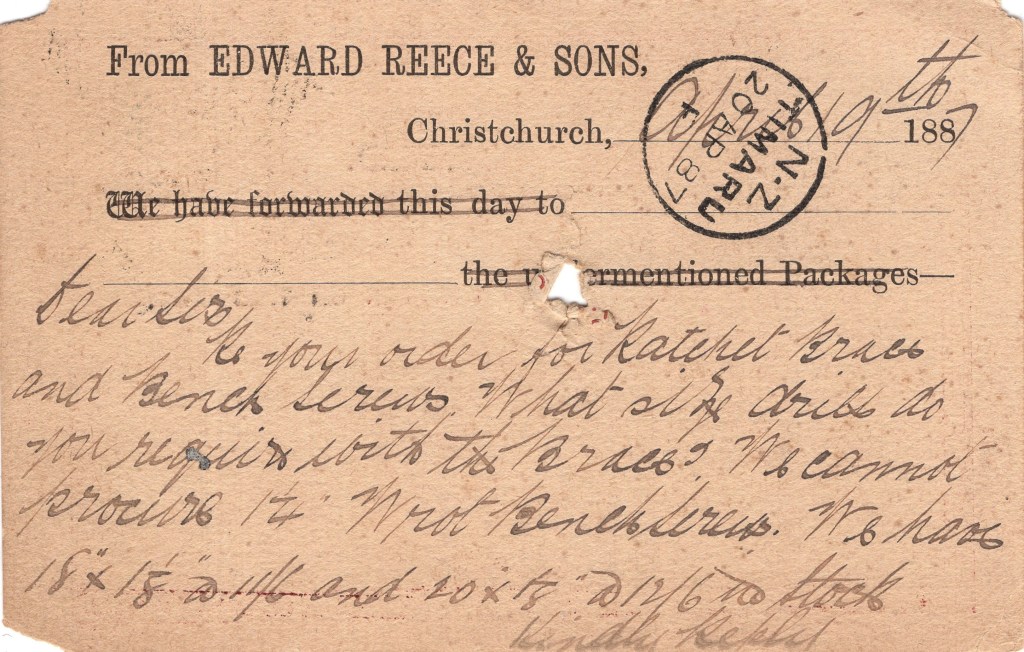 From EDWARD REECE & SONS,
Christchurch, April 19th 1887
N.Z
TIMARU
20 AP 87
We have forwarded this day to
the u ermentioned Packages—
Dear Sir
Re your order for Ratchet Brace
and Bench Screws. What size drills do
you require with the Brace? We cannot
procure Wrot Bench Screws. We have
18" x and 20 x @ 12/6 in Stock
Kindly Reply